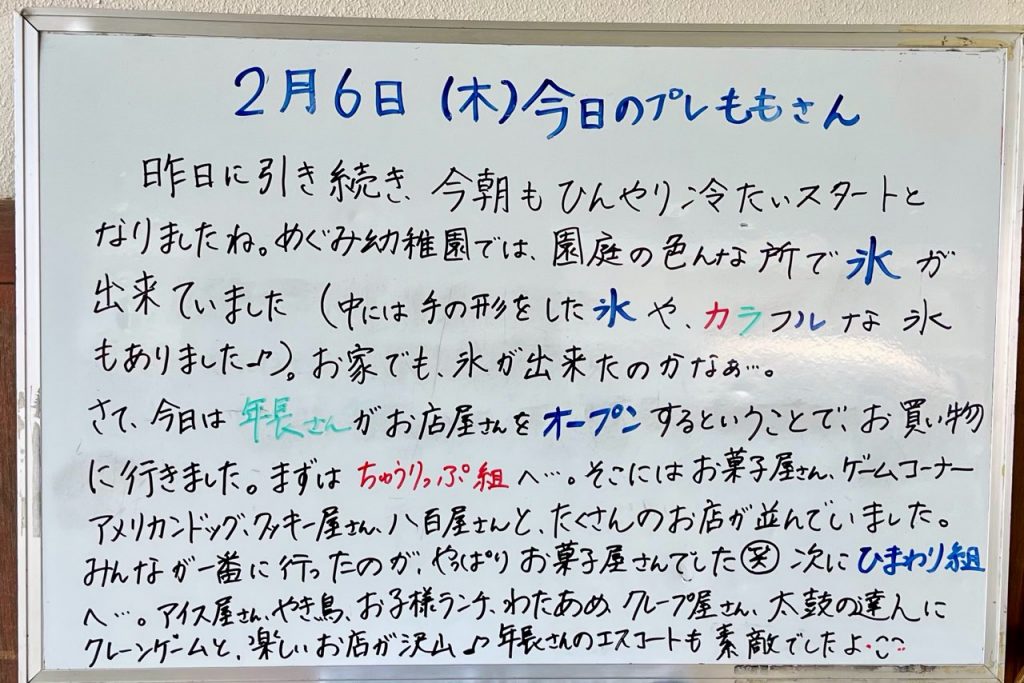 2月6日(木)今日のプレももさん
昨日に引き続き、今朝もひんやり冷たいスタートと
なりましたね。めぐみ幼稚園では、園庭の色んな所で氷が
出来ていました(中には手の形をした氷や、カラフルな氷
もありました♪)。お家でも、氷が出来たのかなぁ…。
さて、今日は年長さんがお店屋さんをオープンするということで、お買い物
に行きました。まずはちゅうりっぷ組へ…。そこにはお菓子屋さん、ゲームコーナー
アメリカンドッグ、クッキー屋さん、八百屋さんと、たくさんのお店が並んでいました。
みんなが一番に行ったのが、やっぱりお菓子屋さんでした㊗次にひまわり組
へ…。アイス屋さん、やき鳥、お子様ランチ、わたあめ、クレープ屋さん、太鼓の達人に
クレーンゲームと、楽しいお店が沢山♪年長さんのエスコートも素敵でしたよ